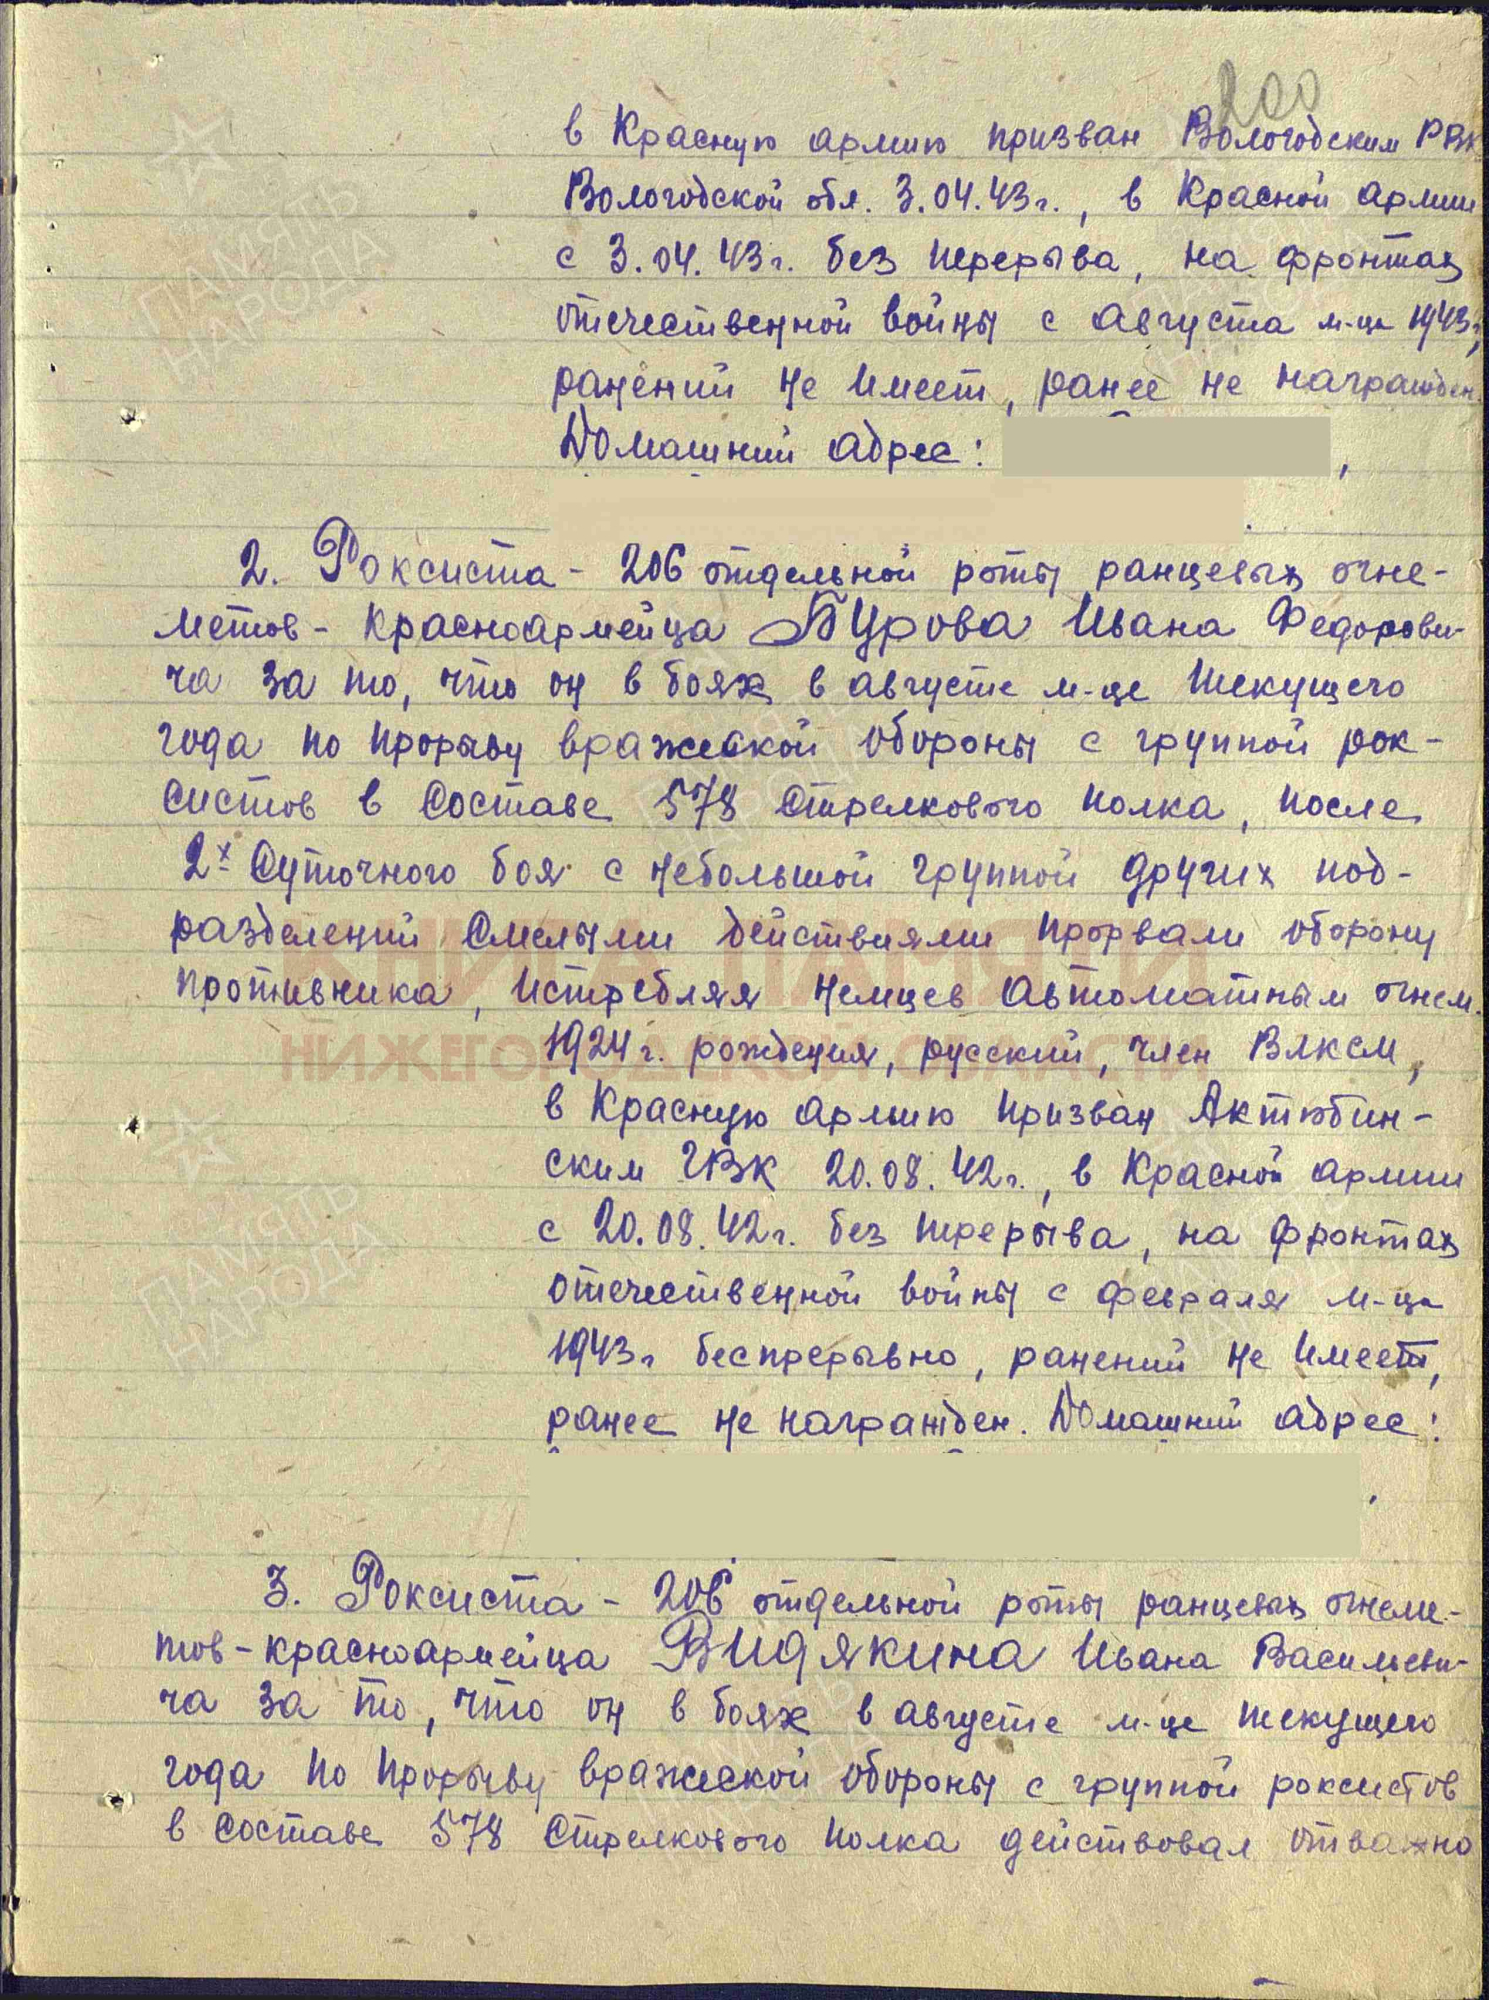 200
в Красную армию призван Вологодским РВК
Вологодской обл. 3.04.43г., в Красной армии
с 3.04.43г. без перерыва, на фронтах
отечественной войны с августа м-ца 1943г,
ранений не имеет, ранее не награжден.
Домашний адрес: ,
2. Роксиста - 206 отдельной роты ранцевых огне-
метов - красноармейца Бурова Ивана Федорови-
ча за то, что он в боях в августе м-це текущего
года по прорыву вражеской обороны с группой рок-
систов в составе 578 стрелкового полка, после
2х суточного боя с небольшой группой других под-
разделений смелыми действиями прорвали оборону
противника, истребляя немцев автоматным огнем.
1924г. рождения, русский, член ВЛКСМ,
в Красную армию призван Актюбин-
ским ГВК 20.08.42г., в Красной армии
с 20.08.42г. без перерыва, на фронтах
отечественной войны с февраля м-ца
1943г беспрерывно, ранений не имеет,
ранее не награжден. Домашний адрес:
3. Роксиста - 206 отдельной роты ранцевых огнеме-
тов - красноармейца Видякина Ивана Васильеви-
ча за то, что он в боях в августе м-це текущего
года по прорыву вражеской обороны с группой роксистов
в составе 578 стрелкового полка действовал отважно
ПАМЯТЬ
НАРОДА
КНИГА ПАМЯТИ
НИЖЕГОРОДСКОЙ ОБЛАСТИ
ПАМЯТЬ
НАРОДА